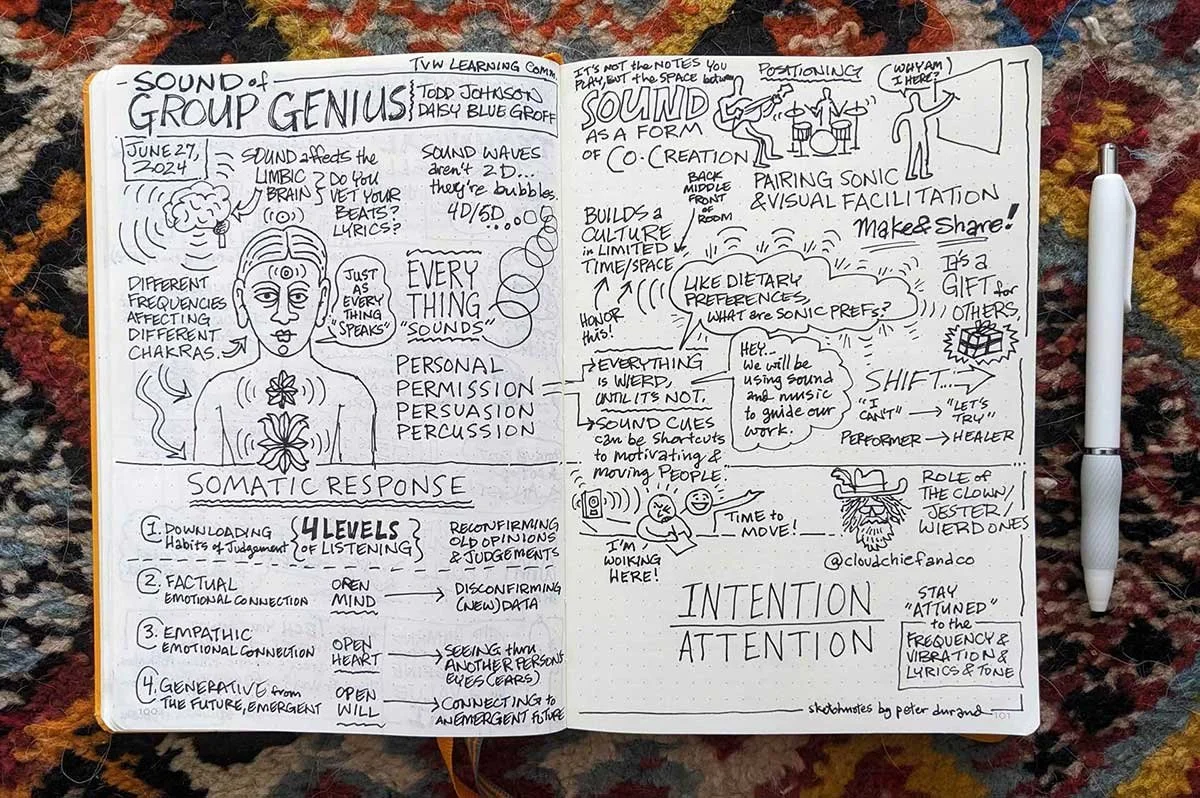 TVW LEARNING COMM.
SOUND of
GROUP GENIUS
TODD JOHNSON
DAISY BLUE GROFF
JUNE 27,
2024
SOUND affects the
LIMBIC
BRAIN
DO YOU
VET YOUR
BEATS?
LYRICS?
SOUND WAVES
aren't 2D...
they're bubbles.
4D/5D...
DIFFERENT
FREQUENCIES
AFFECTING
DIFFERENT
CHAKRAS.
JUST
AS
EVERY
THING
"SPEAKS"
EVERY
THING
"SOUNDS"
PERSONAL
PERMISSION
PERSUASION
PERCUSSION
SOMATIC RESPONSE
1. DOWNLOADING
Habits of Judgement
4 LEVELS
OF LISTENING
RECONFIRMING
OLD OPINIONS
& JUDGEMENTS
2. FACTUAL
EMOTIONAL CONNECTION
OPEN
MIND
DISCONFIRMING
(NEW) DATA
3. EMPATHIC
EMOTIONAL CONNECTION
OPEN
HEART
SEEING thru
ANOTHER PERSONS
EYES (EARS)
4. GENERATIVE from
THE FUTURE, EMERGENT
OPEN
WILL
CONNECTING to
AN EMERGENT FUTURE
100
IT'S NOT the NOTES YOU
PLAY, BUT the SPACE between
SOUND
AS A FORM
OF CO-CREATION
POSITIONING
WHY AM
I HERE?
BACK
MIDDLE
FRONT
OF
ROOM
PAIRING SONIC
& VISUAL FACILITATION
Make & Share!
BUILDS a
CULTURE
in LIMITED
TIME/SPACE
HONOR
this!
LIKE DIETARY
PREFERENCES,
WHAT are SONIC PREFS?
IT'S a
GIFT for
OTHERS,
EVERYTHING
IS WIERD,
UNTIL IT'S NOT.
HEY...
we will be
using sound
and music
to guide our
work.
SHIFT...
"I
CAN'T"
"LET'S
TRY"
PERFORMER → HEALER
SOUND CUES
can be shortcuts
to motivating &
moving PEOPLE.
TIME to
MOVE!
I'M
WOIKING
HERE!
ROLE of
THE CLOWN/
JESTER/
WIERD ONES
@cloudchiefandco
INTENTION
ATTENTION
STAY
"ATTUNED"
to the
FREQUENCY &
VIBRATION &
LYRICS & TONE
sketchnotes by peter durand
101